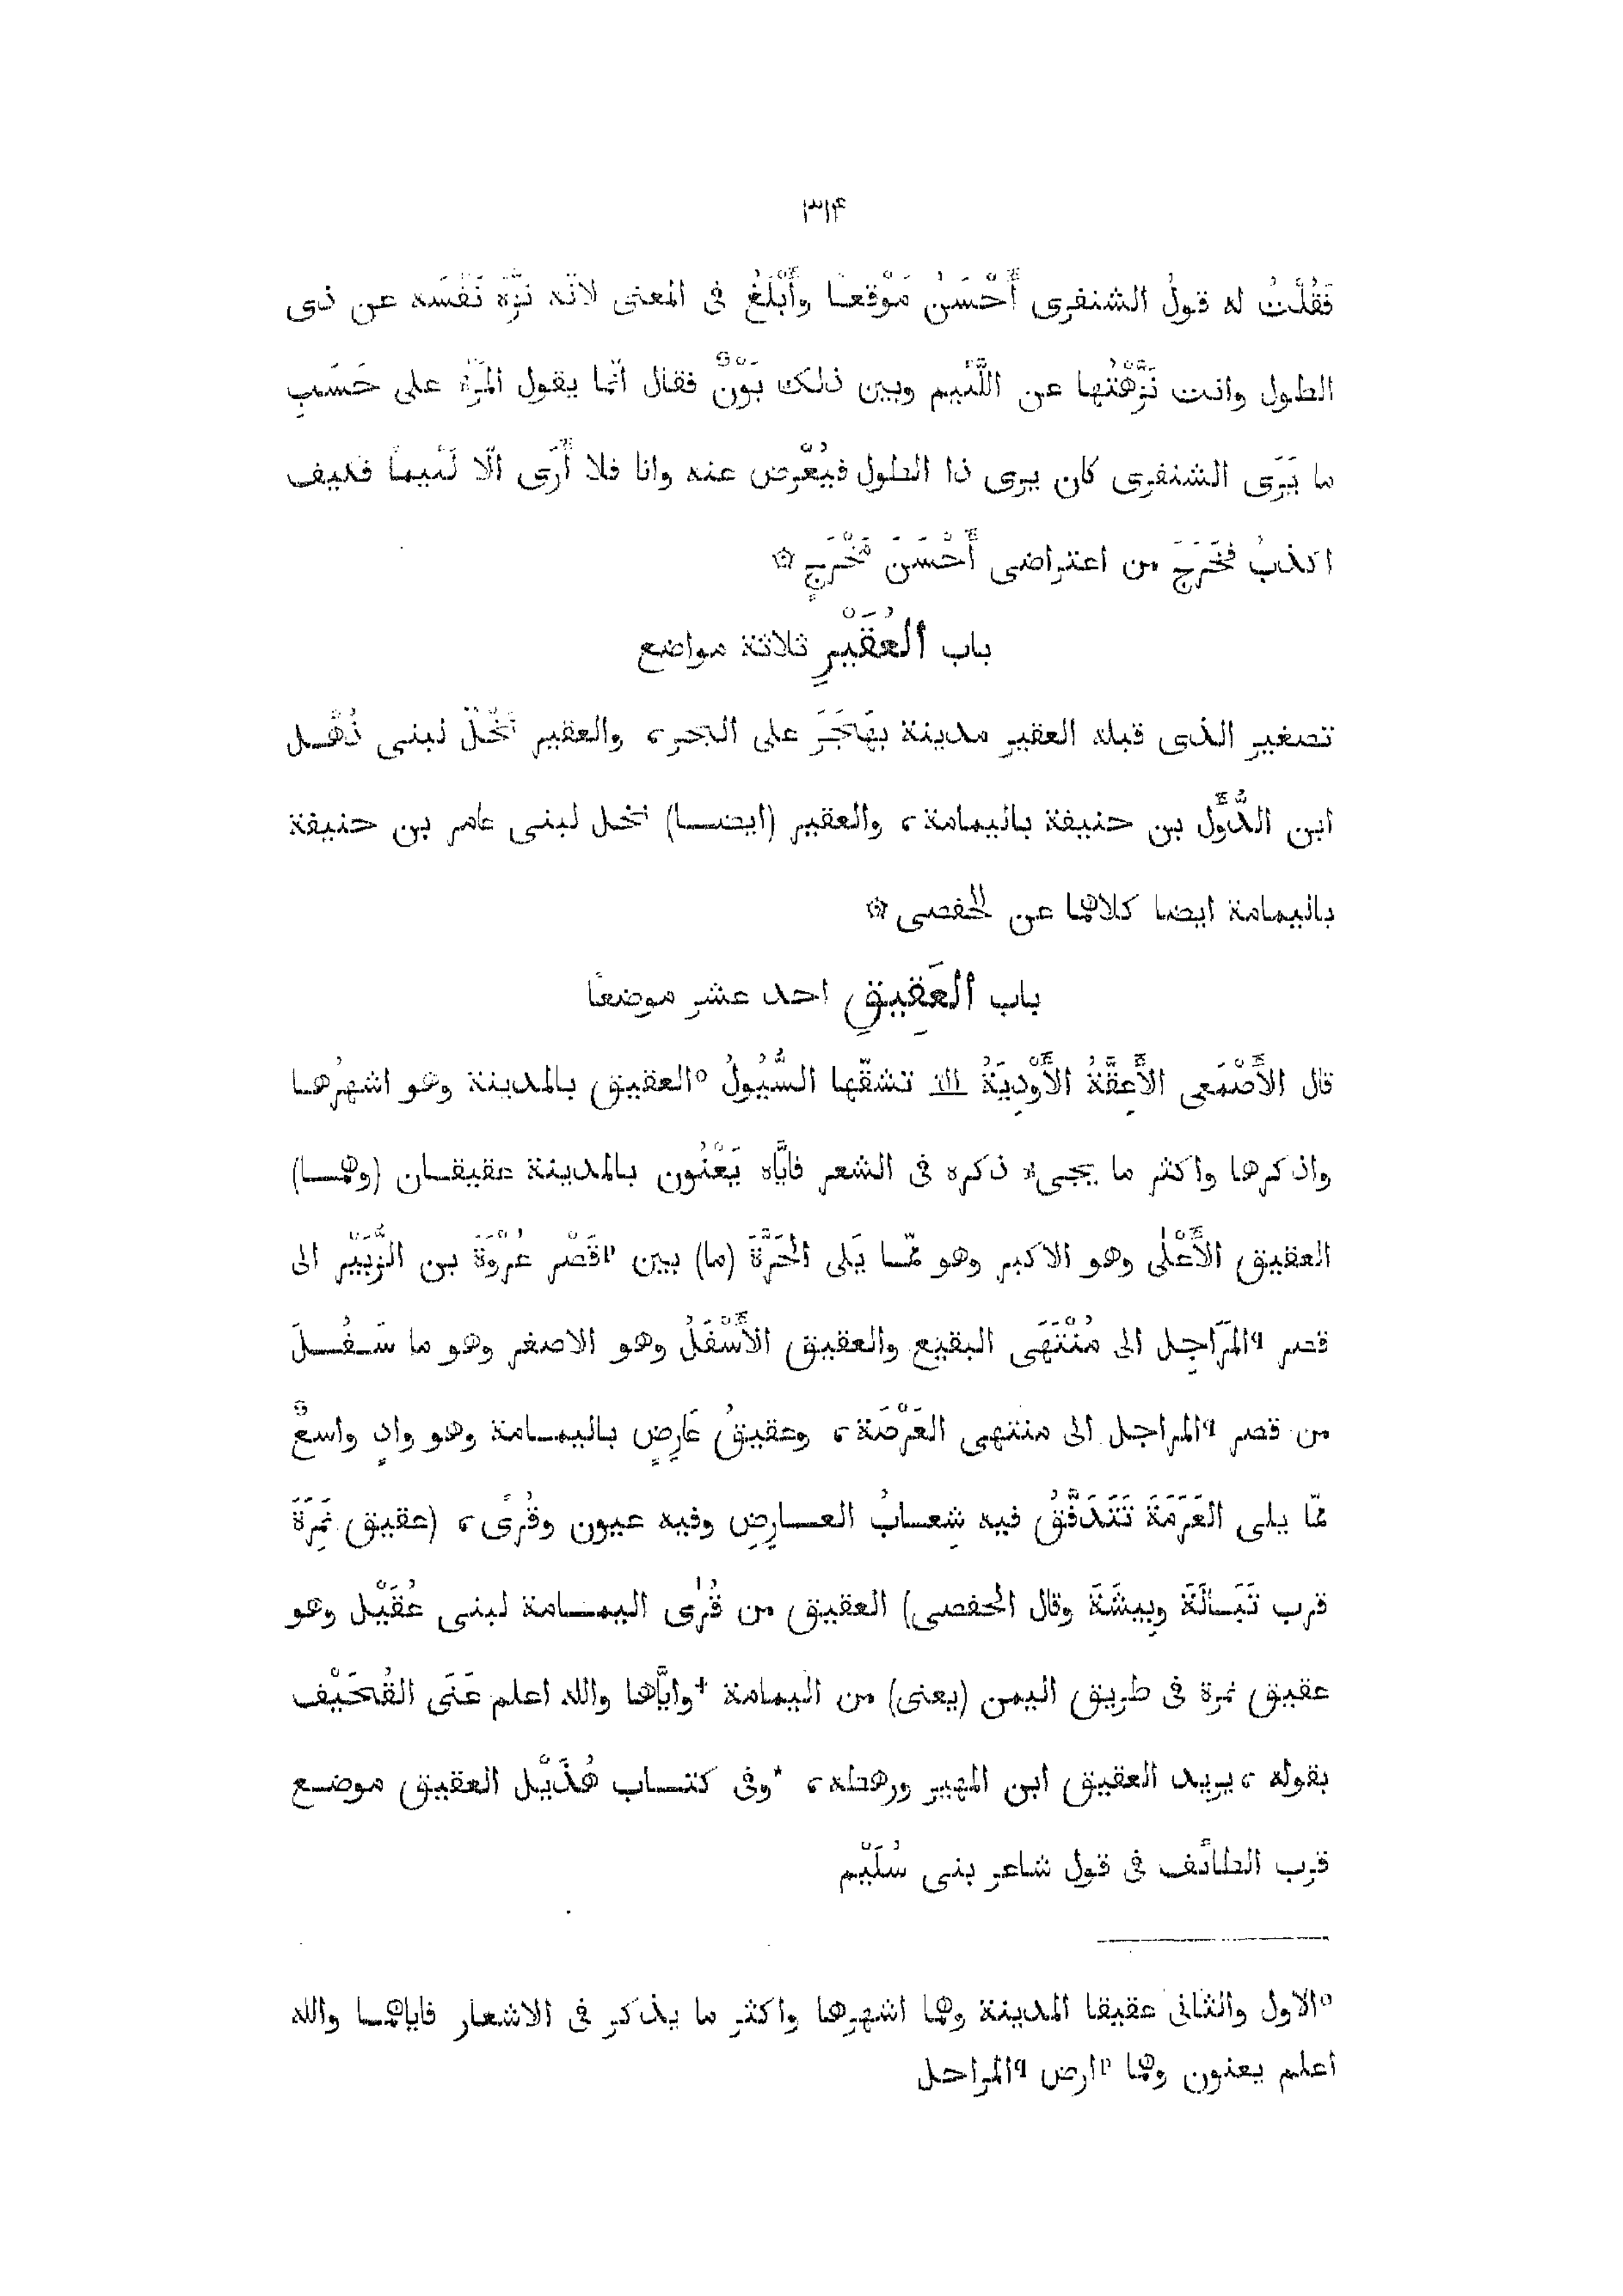 ٣١۴
فَقُلْتُ له قولُ الشنفرى أَحْسَنُ مَوْقعـا وأَبْلَغُ فى المعنى لانّه نَزَّهَ نَفْسَه عن ذى
الطول وانت نَزَّهْتُها عن اللَّئيم وبين ذلك بَوْنٌ فقال انّما يقول المَرْء على حَسَبِ
ما يَرَى الشنفرى كان يرى ذا الطول فيُعْرِض عنه وانا فلا أَرَى الّا لَئيمًا فكيف
اكذبُ فخَرَجَ من اعتراضى أَحْسَنَ مَخْرَجٍ ۞
باب العُقَيْرِ ثلاثة مواضع
تصغير الذى قبله العقير مدينة بهَاجَرَ على البحر، والعقير نَخْلٌ لبنى ذُهْـل
ابن الدُّوَّل بن حنيفة باليمامة، والعقير (ايضـا) نخل لبنى عامر بن حنيفة
باليمامة ايضا كلاهما عن الحفصى ۞
باب العَقِيقِ احد عشر موضعًا
قال الأَصْمَعى الأَعِقَّةُ الأَوْدِيَةُ الّتى تشقّها السُّيُولُ °العقيق بالمدينة وهو اشهرُهـا
واذكرها واكثر ما يجىء ذكره فى الشعر فايَّاه يَعْنُون بالمدينة عقيقـان (وهمـا)
العقيق الأَعْلى وهو الاكبر وهو ممّـا يَلى الحَرَّةَ (ما) بين pقَصْر عُرْوَةَ بن الزُّبَيْر الى
قصر qالمَرَاجِل الى مُنْتَهَى البقيع والعقيق الأَسْفَلُ وهو الاصغر وهو ما سَـفُـلَ
من قصر qالمراجل الى منتهى العَرْصَة، وعقيقُ عَارِضٍ باليمـامة وهو وادٍ واسعٌ
ممّا يلى العَرَمَةَ تَتَدَفَّقُ فيه شِعـابُ العـارِضِ وفيه عيون وقُرًى، (عقيق نَمِرَةَ
قرب تَبَـالَةَ وبيشَةَ وقال الحفصى) العقيق من قُرٰى اليمـامة لبنى عُقَيْل وهو
عقيق نمرة فى طريق اليمن (يعنى) من اليمامة +وايَّاها والله اعلم عَنَى القُحَيْف
بقوله، يريد العقيق ابن المهير ورهطه، *وفى كتـاب هُذَيْل العقيق موضـع
قرب الطائف فى قول شاعر بنى سُلَيْم
°الاول والثانى عقيقا المدينة وهما اشهرها واكثر ما يذكر فى الاشعار فاياهمـا والله
اعلم يعنون وهما pارض qالمراحل